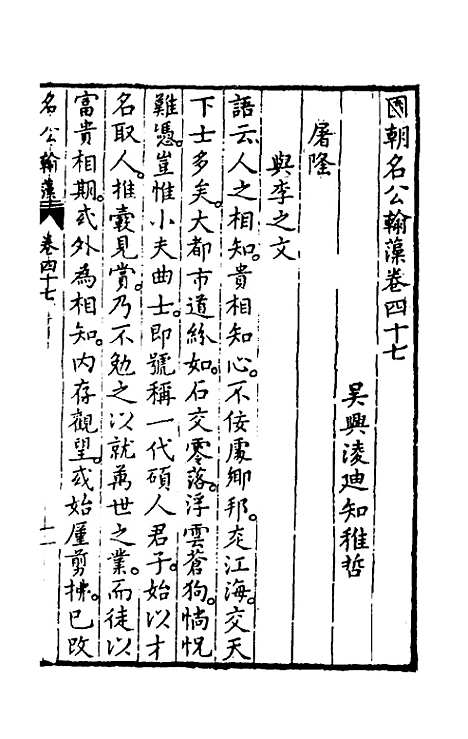 國朝名公翰藻卷四十七
吴興凌迪知稚哲
屠隆
與李之文
語云人之相知。貴相知心。不佞處鄉邦。走江海。交天
下士多矣。大都市道紛如。石交零落。浮雲蒼狗。惝怳
難憑。豈惟小夫曲士。即號稱一代碩人君子。始以才
名取人。推轂見賞。乃不勉之以就萬世之業。而徒以
富貴相期。或外為相知。内存觀望。或始厪剪拂。已改
名公翰藻 卷四十七